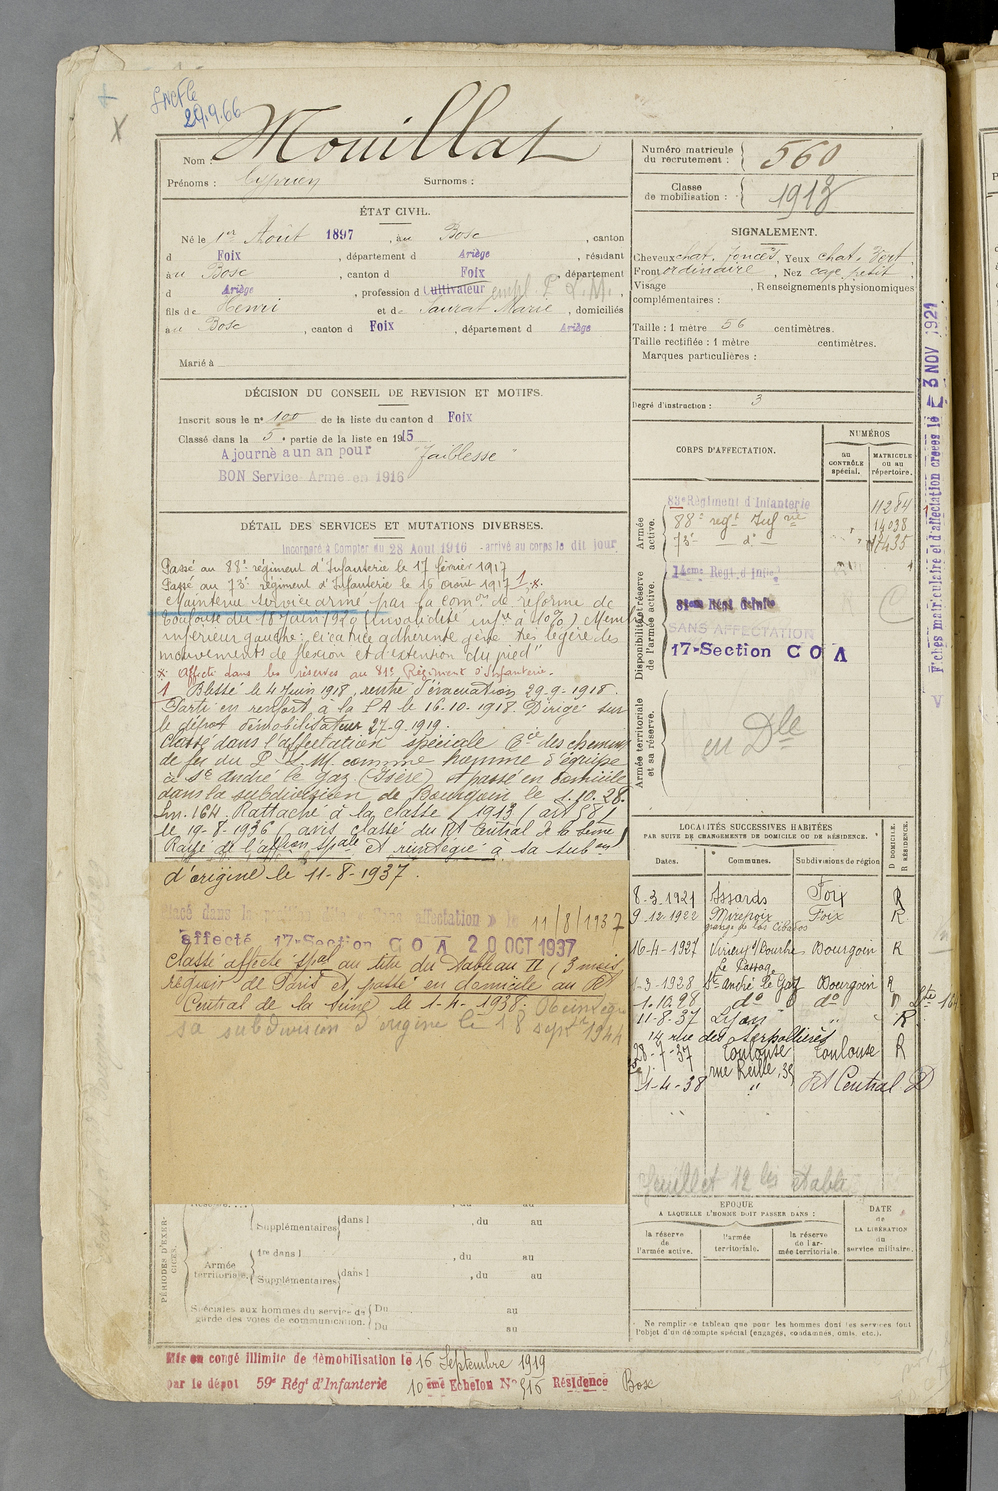 SNCF le
29.9.66
X
Nom : Mouillat
Prénoms : Cyprien Surnoms :
Numéro matricule du recrutement : 560
Classe de mobilisation : 1913
ÉTAT CIVIL.
Né le 1er Août 1897, au Bosc, canton
d Foix, département d Ariège, résidant
au Bosc, canton d Foix, département
d Ariège, profession d Cultivateur empl. P.L.M.,
fils de Henri et de Saurat Marie, domiciliés
au Bosc, canton d Foix, département d Ariège
Marié à
SIGNALEMENT.
Cheveux chat. foncés, Yeux chat. vert,
Front ordinaire, Nez cave petit
Visage , Renseignements physionomiques
complémentaires :
Taille : 1 mètre 56 centimètres.
Taille rectifiée : 1 mètre centimètres.
Marques particulières :
Degré d'instruction : 3
DÉCISION DU CONSEIL DE REVISION ET MOTIFS.
Inscrit sous le n° 100 de la liste du canton d Foix
Classé dans la 5e partie de la liste en 1915
Ajourné a un an pour "faiblesse"
BON Service Armé en 1916
DÉTAIL DES SERVICES ET MUTATIONS DIVERSES.
Incorporé à Compter du 28 Aout 1916 - arrivé au corps le dit jour
Passé au 88e régiment d'Infanterie le 17 février 1917
Passé au 73e régiment d'Infanterie le 16 août 1917 1.x.
Maintenu service armé par la Comon de réforme de
Toulouse du 18 Juin 1920 (Invalidité infre à 10%) Membre
inférieur gauche: cicatrice adhérente gêne très légère des
mouvements de flexion et d'extention du pied"
x Affecté dans les réserves au 81e Régiment d'Infanterie.
1 Blessé le 4 Juin 1918, rentré d'évacuation 29-9-1918.
Parti en renfort, à la P A le 16.10.1918. Dirigé sur
le dépôt démobilisateur 27-9.1919.
Classé dans l'affectation spéciale Cie des chemins
de fer du P.L.M. comme homme d'équipe
à St André le Gaz (Isère). Passé en domicile
dans la subdivision de Bourgoin le 1.10.28.
Ln. 164. Rattaché à la classe 1913 (art 58)
le 19-8-1936 (avis classé du Rt Central de la Seine)
Rayé de l'affon spale et réintégré à sa subon
d'origine le 11-8-1937.
Placé dans la position dite « sans affectation » le 11/8/1937
affecté 17e Section C O A 20 OCT 1937
Classé affecté spal au titre du Tableau II (3 mois
région de Paris et passé en domicile au Rt
Central de la Seine le 1-4-1938. Réintégré
sa subdivision d'origine le 18 septbre 1944
CORPS D'AFFECTATION.
NUMÉROS
au CONTRÔLE spécial.
MATRICULE ou au répertoire.
Armée active.
83e Régiment d'Infanterie 11284
88e regt Infrie " 14038
73e do
Disponibilité et réserve de l'armée active.
14eme Regt. d'Infie
81eme Régt d'Infie
SANS AFFECTATION
17e Section C O A
Armée territoriale et sa réserve.
en Dle
Fiches matriculaire et d'affectation créées le 3 NOV 1921
LOCALITÉS SUCCESSIVES HABITÉES
PAR SUITE DE CHANGEMENTS DE DOMICILE OU DE RÉSIDENCE.
Dates. Communes. Subdivisions de région D DOMICILE. R RÉSIDENCE.
8-3-1921 Foix R
9-12-1922 Mirepoix Foix R
16-4-1927 Virieu s/Bourbre Bourgoin R
Le Passage
1-3-1928 St André le Gaz Bourgoin R
1.10.28 do do D
11-8-37 Lyon " R
14 rue des
28-7-37 Toulouse Toulouse R
rue Reille, 35
1-4-38 " Rt Central D
feuillet 12 bis établi
ÉPOQUE
A LAQUELLE L'HOMME DOIT PASSER DANS :
la réserve de l'armée active.
l'armée territoriale.
la réserve de l'armée territoriale.
DATE de LA LIBÉRATION du service militaire.
PÉRIODES D'EXERCICES.
Supplémentaires dans l , du au
Armée territoriale. 1re dans l , du au
Supplémentaires dans l , du au
Spéciales aux hommes du service de garde des voies de communication. Du au
Du au
Ne remplir ce tableau que pour les hommes dont les services font
l'objet d'un décompte spécial (engagés, condamnés, omis, etc.).
Mis en congé illimité de démobilisation le 16 Septembre 1919
par le dépôt 59e Régt d'Infanterie 10ème Echelon N° 516 Résidence Bosc